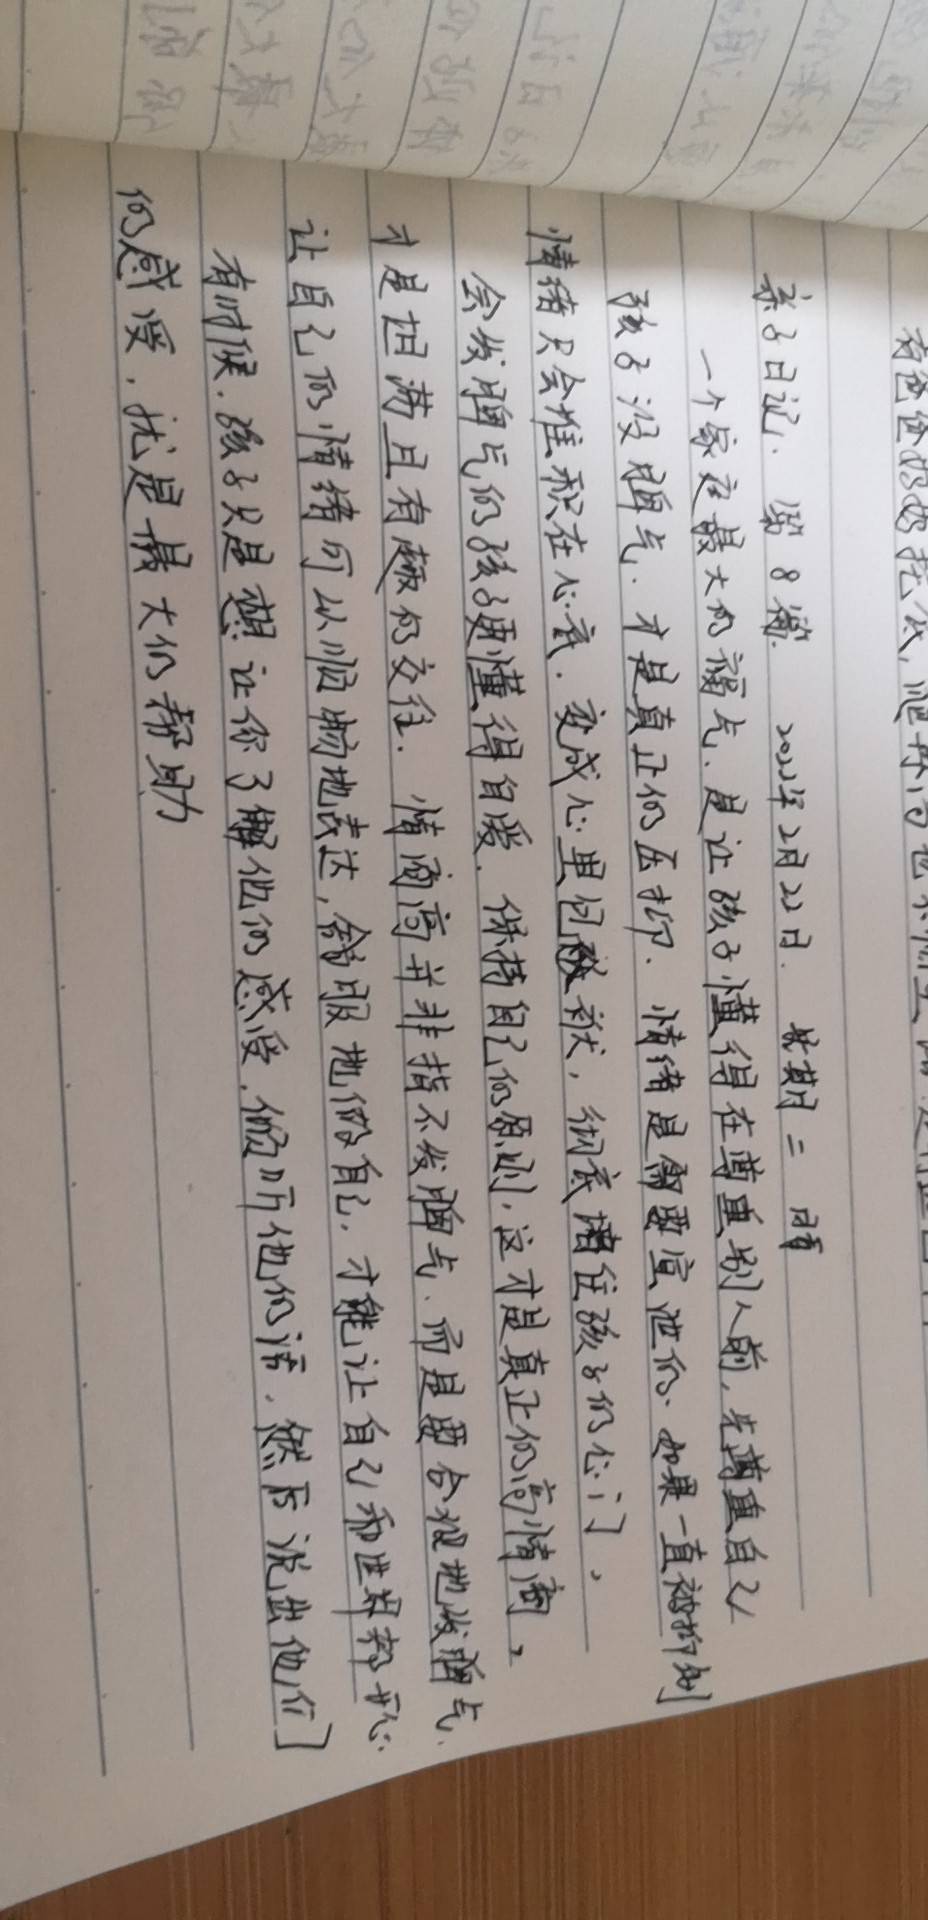 有爸爸妈妈托底,
亲子日记. 第8篇. 2022年2月22日. 星期二 晴
一个家庭最大的福气. 是让孩子懂得在尊重别人前, 先尊重自己
孩子没脾气. 才是真正的压抑. 情绪是需要宣泄的. 如果一直被抑制
情绪只会堆积在心底. 变成心里包袱, 彻底堵住孩子的心门.
会发脾气的孩子更懂得自爱. 保持自己的原则, 这才是真正的高情商,
才是坦荡且有趣的交往. 情商高并非指不发脾气. 而是要合理地发脾气.
让自己的情绪可以顺畅地表达, 舒服地做自己. 才能让自己和世界都开心.
有时候. 孩子只是想让你了解他的感受. 倾听他的话. 然后说出他们
的感受. 就是最大的帮助